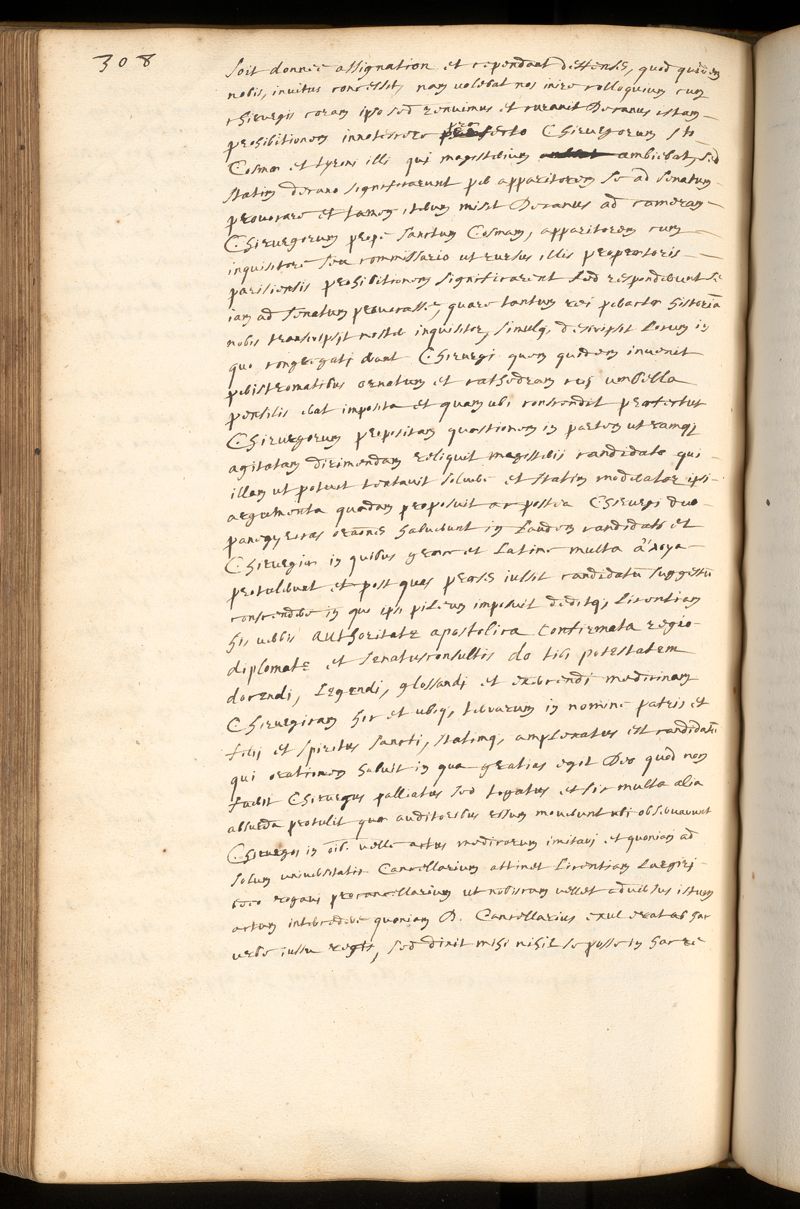 308
soit donnee assignation et cependant deffenses, quod quidem
nobis, invitus concessit, nam volebat nos inire colloquium cum
chirurgis coram ipso sed renuimus et curavit Decanus istam
prohibitionem innotescere præfecto Chirurgorum sti
Cosmæ et tyroni illi qui magisterium ambiebat, sed
statim decano significarunt per apparitorem se ad senatum
provocare et tamen iterum misit Decanus ad cameram
Chirurgorum prope sanctum Cosmam, apparitorem cum
inquisitore seu commissario ut rursus illis præpositoris
parisiensis prohibitionem significarent sed responderunt se
iam ad senatum provocasse, quare tantum rei peractæ historiā
nobis transcripsit noster inquisitor, simulq, descripsit locum in
quo congregati erant Chirurgi quem quidem invenit
peristromatibus ornatum et cathedram cui umbella
pensilis erat imposita et quam ubi conscendit præfectus
Chirurgorum propositam quæstionem in partem utramq;
agitatam dirimendam reliquit magisterii candidato qui
illam ut potuit tentavit solvere et statim moderator ipsi
argumenta quædam proposuit ac postea Chirurgi duo
panegyricas orāones habuerunt in laudem candidati et
Chirurgiæ in quibus græce et latine multa ἄλογα
protulerunt et post quas præses iussit candidatū suggestū
conscendere in quo ipsi pileum imposuit deditq, licentiam
his verbis authoritate apostolica confirmata regio
diplomate et senatusconsultis do tibi potestatem
docendi, legendi, glossandi et exercendi medicinam
Chirurgicam hic et ubiq, terrarum in nomine patris et
filij et spiritus sancti, statimq, amplexatus est candidatū
qui orationem habuit in qua gratias egit Deo quod non
fuerit Chirurgus palliatus sed togatus et sic multa alia
absurda protulit quæ auditoribus risum moverunt ubi observarunt
Chirurgos in oib. velle actus medicorum imitari et quoniam ad
solum universitatis Cancellarium attinet licentiam largiri
rogavi procancellarium ut nobiscum vellet adversus istum
actum intercedere quoniam D. Cancellarius exul erat ab hac
urbe iussu regis, sed dixit mihi nihil se posse in hac re